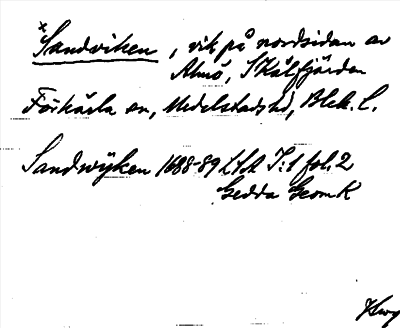 x
Sandviken, vik på nordsidan av
Almö, S Kålfjärden
Förkärla sn, Medelstads hd, Blek. l.
Sandwijken 1688-89 LSA I:1 fol. 2
Gedda GeomK